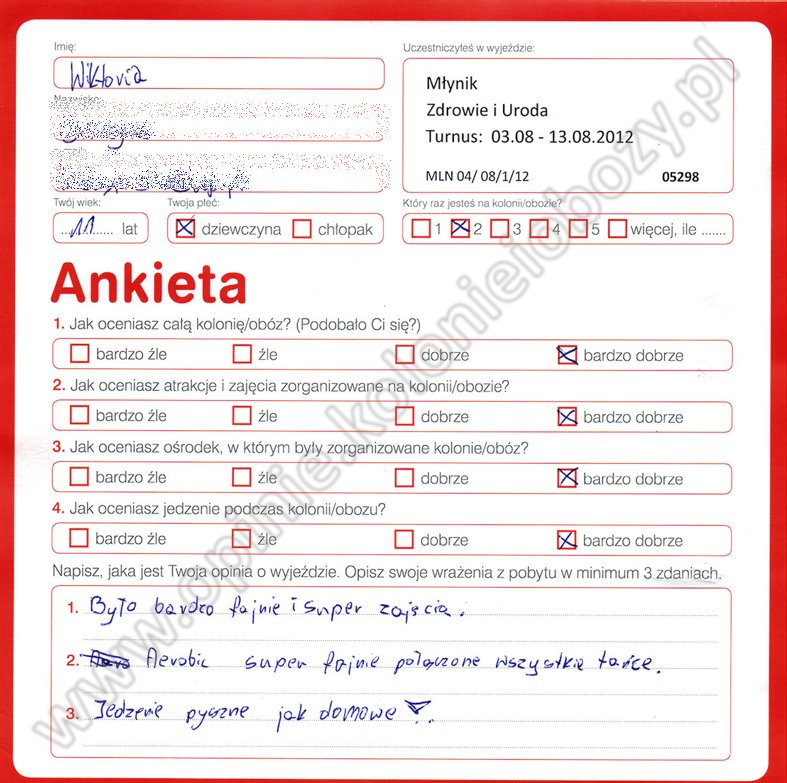 Imię:
Wiktoria
Uczestniczyłeś w wyjeździe:
Młynik
Zdrowie i Uroda
Turnus: 03.08 - 13.08.2012
MLN 04/ 08/1/12 05298
Nazwisko:
Twój wiek:
...11...... lat
Twoja płeć:
dziewczyna chłopak
Który raz jesteś na kolonii/obozie?
1 2 3 4 5 więcej, ile .......
Ankieta
1. Jak oceniasz całą kolonię/obóz? (Podobało Ci się?)
bardzo źle źle dobrze bardzo dobrze
2. Jak oceniasz atrakcje i zajęcia zorganizowane na kolonii/obozie?
bardzo źle źle dobrze bardzo dobrze
3. Jak oceniasz ośrodek, w którym były zorganizowane kolonie/obóz?
bardzo źle źle dobrze bardzo dobrze
4. Jak oceniasz jedzenie podczas kolonii/obozu?
bardzo źle źle dobrze bardzo dobrze
Napisz, jaka jest Twoja opinia o wyjeździe. Opisz swoje wrażenia z pobytu w minimum 3 zdaniach.
1. Było bardzo fajnie i super zajęcia.
2. Aerobic super fajnie połączone wszystkie tańce.
3. Jedzenie pyszne jak domowe
www.opinie.kolonieiobozy.pl